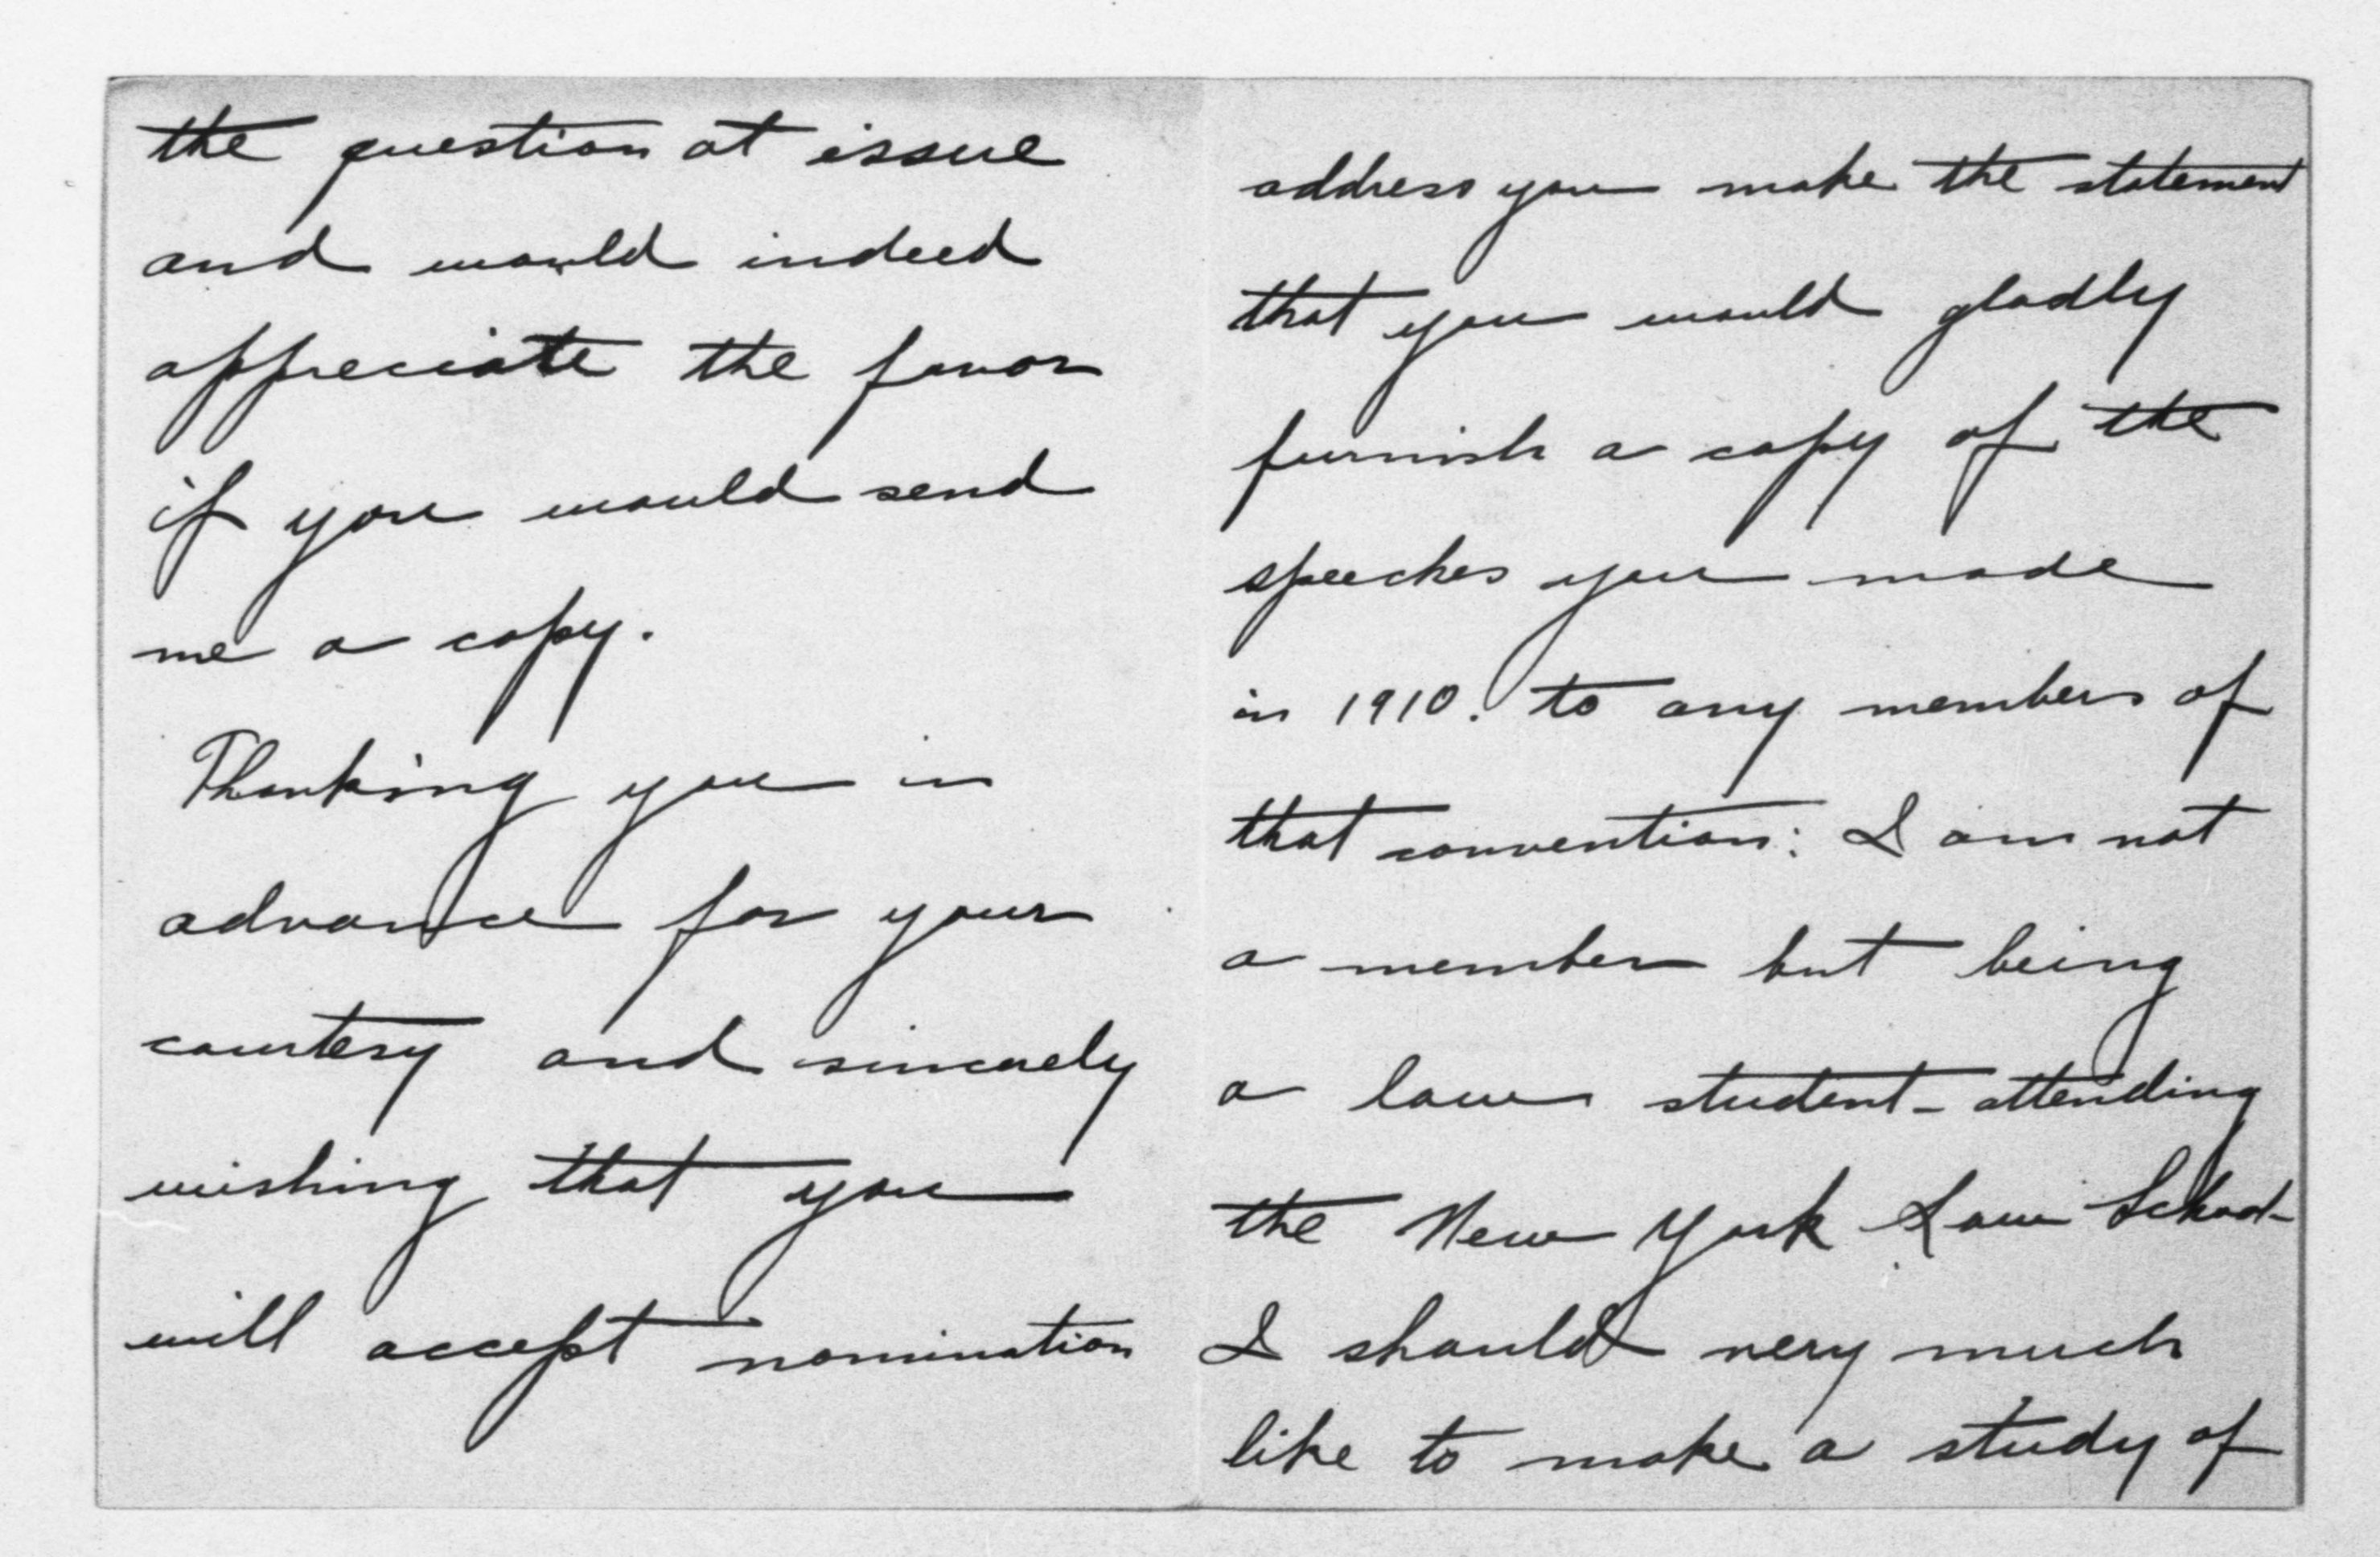 the question at issue
and would indeed
appreciate the favor
if you would send
me a copy.
Thanking you in
advance for your
courtesy and sincerely
wishing that you
will accept nomination
address you make the statement
that you would gladly
furnish a copy of the
speeches you made
in 1910. to any members of
that convention: I am not
a member but being
a law student - attending
the New York Law School -
I should very much
like to make a study of